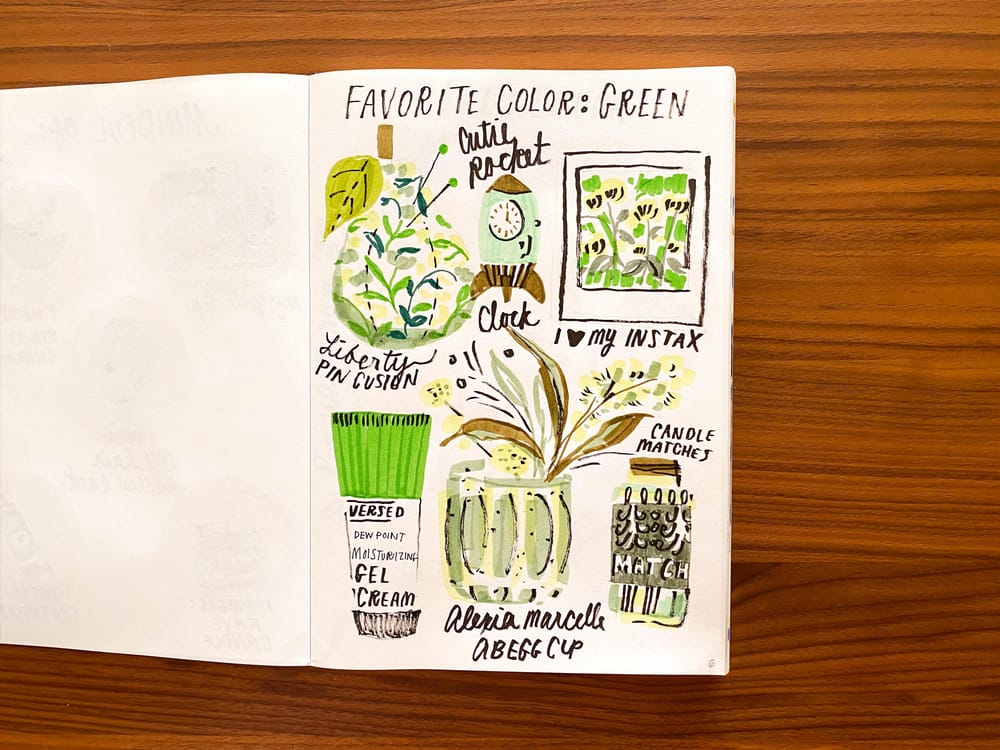 FAVORITE COLOR: GREEN
Cutie
Rocket
Clock
I ♥ my INSTAX
Liberty
PIN CUSION
CANDLE
MATCHES
VERSED
DEW POINT
MOISTURIZING
GEL
CREAM
MATCH
Alexia Marcelle
ABEGG CUP
6
MINDFUL OF: